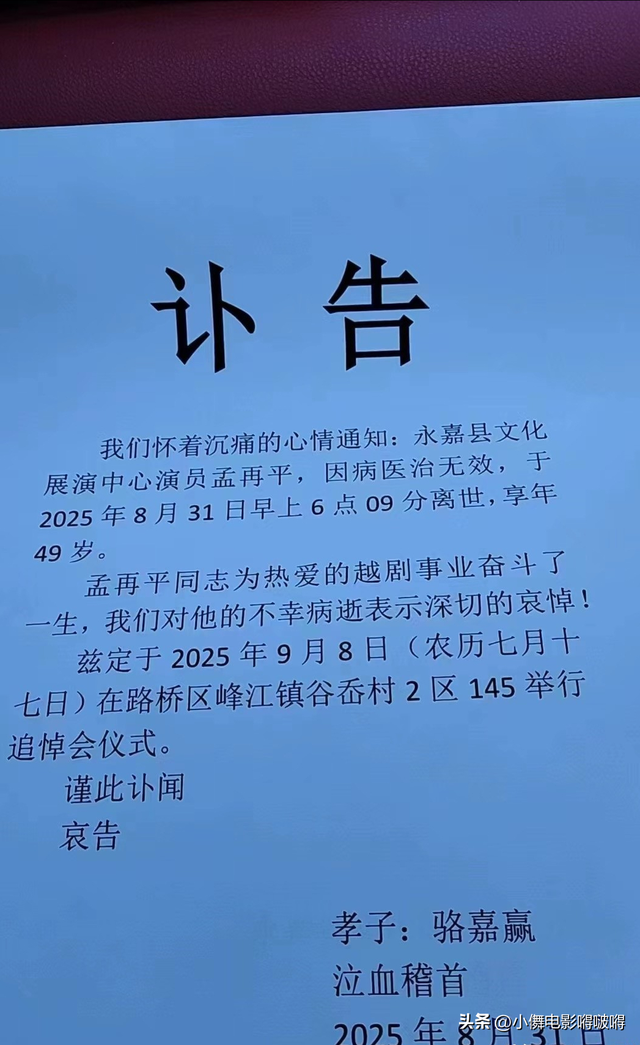 讣 告
我们怀着沉痛的心情通知：永嘉县文化
展演中心演员孟再平，因病医治无效，于
2025 年 8 月 31 日早上 6 点 09 分离世，享年
49 岁。
孟再平同志为热爱的越剧事业奋斗了
一生，我们对他的不幸病逝表示深切的哀悼！
兹定于 2025 年 9 月 8 日（农历七月十
七日）在路桥区峰江镇谷岙村 2 区 145 举行
追悼会仪式。
谨此讣闻
哀告
孝子：骆嘉赢
泣血稽首
2025 年 8 月 31 日
头条 @小儛电影嘚啵嘚